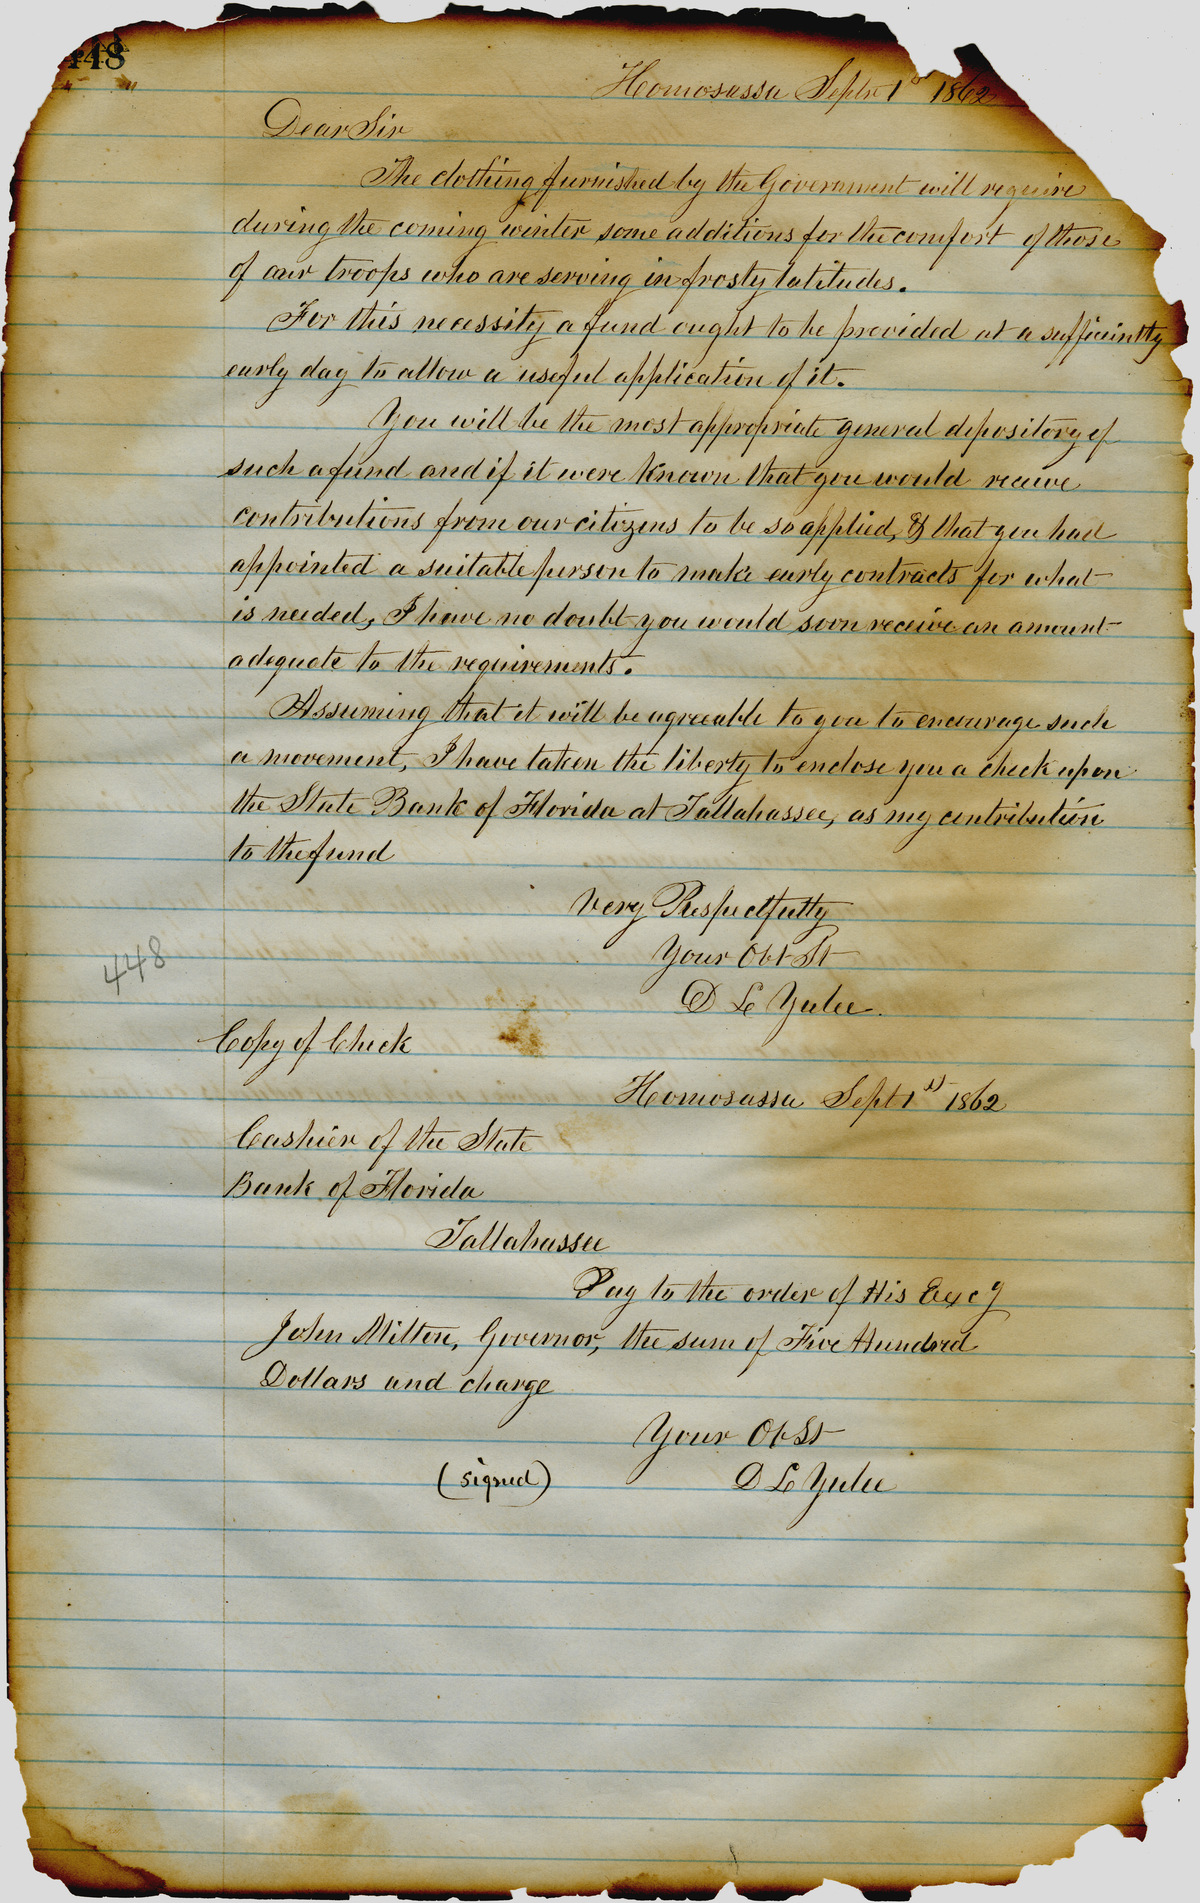 448
Homosassa Septr 1st 1862
Dear Sir
The clothing furnished by the Government will require
during the coming winter some additions for the comfort of those
of our troops who are serving in frosty latitudes.
For this necessity a fund ought to be provided at a sufficiently
early day to allow a useful application of it.
You will be the most appropriate general depository of
such a fund and if it were known that you would receive
contributions from our citizens to be so applied, & that you had
appointed a suitable person to make early contracts for what
is needed, I have no doubt you would soon receive an amount
adequate to the requirements.
Assuming that it will be agreeable to you to encourage such
a movement, I have taken the liberty to enclose you a check upon
the State Bank of Florida at Tallahassee, as my contribution
to the fund
Very Respectfully
Your Obt St
D L Yulee.
448
Copy of Check
Homosassa Sept 1st 1862
Cashier of the State
Bank of Florida
Tallahassee
Pay to the order of His Excy
John Milton, Governor, the sum of Five Hundred
Dollars and charge
Your Ob St
(signed) D L Yulee